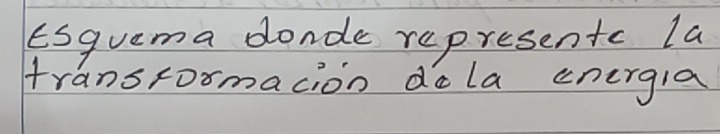 Esquema donde represente la
transformación de la energia